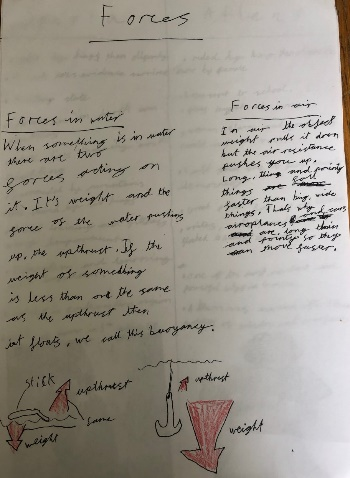 Forces
Forces in water
When something is in water
there are two
forces acting on
it. It's weight and the
force of the water pushing
up, the upthrust. If the
weight of something
is less than or the same
as the upthrust then
it floats, we call this buoyancy.
Forces in air
In air the object
weight pulls it down
but the air resistance
pushes you up.
Long, thin and pointy
things fall
faster than big, wide
things. Thats why cars
and aeroplanes
are long, thin
and pointy so they
can move faster.
stick
upthrust
same
weight
upthrust
weight